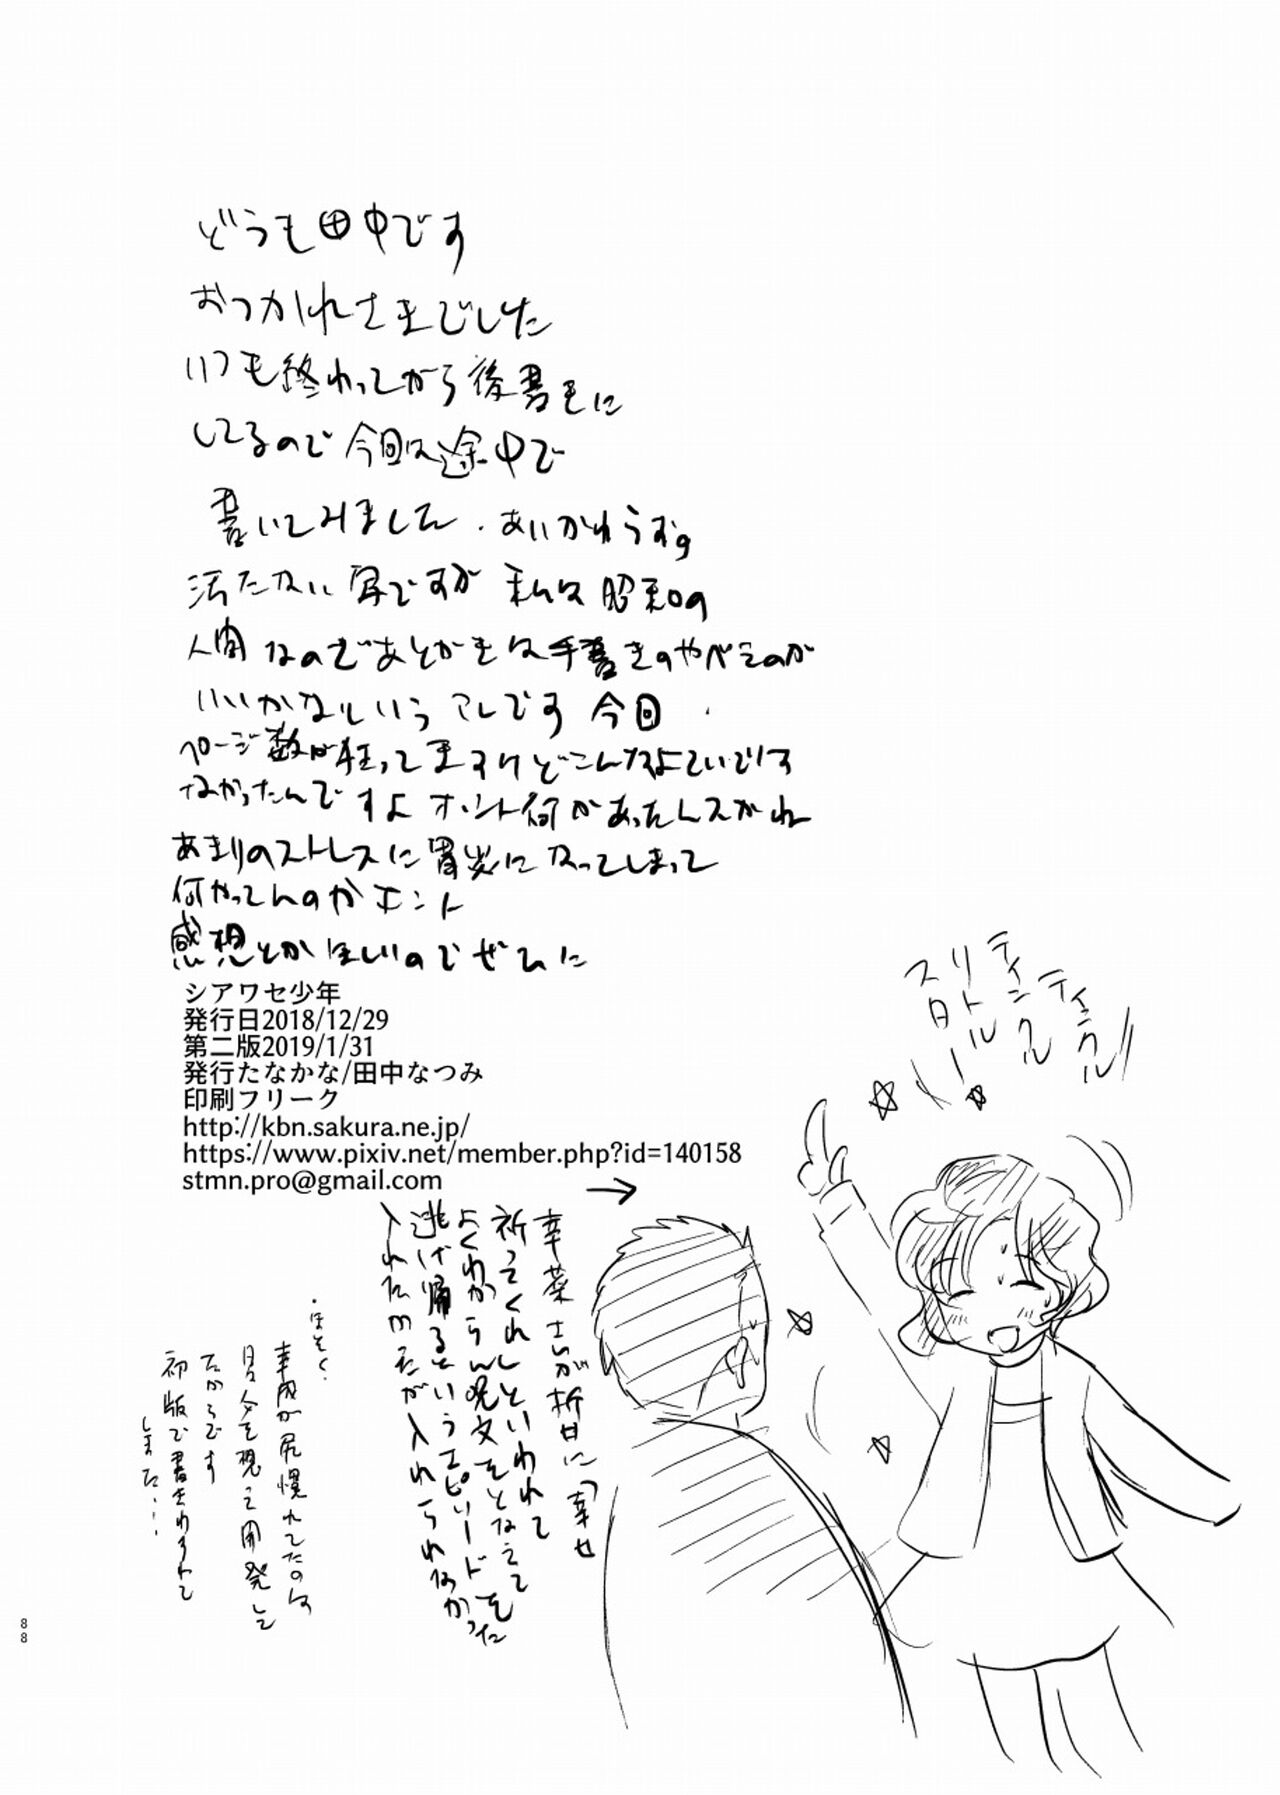 どうも田中です
おつかれさまでした
いつも終わってから後書きに
してるので今回は途中で
書いてみました.あいかわらずの
汚たない字ですが私は昭和の
人間なのであとがきは手書きのやべえのが
いいかなというアレです今回
ページ数が狂ってますけどこんなよていでは
なかったんですよホント何があったんスかね
あまりのストレスに胃炎になってしまって
何やってんのかホント
感想とかほしいのでぜひに
シアワセ少年
発行日2018/12/29
第二版2019/1/31
発行たなかな/田中なつみ
印刷フリーク
http://kbn.sakura.ne.jp/
https://www.pixiv.net/member.php?id=140158
stmn.pro@gmail.com
ティンクル
ティンクル
リトル
スター
→
幸菜さんが折日に「幸せ
祈ってくれ」といわれて
よくわからん呪文をとなえて
逃げ帰るというエピソードを
入れたかったが入れられなかった
・ほそく.
幸成が尻慣れてたのは
自分を想って開発して
たからです
初版で書きわすれて
しまった…
88